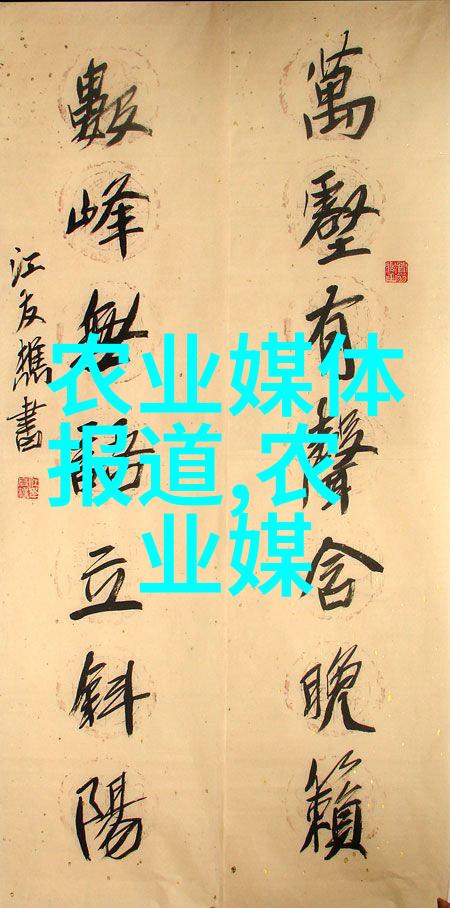 萬壑有聲含晚籟
數峰無語立斜陽
江友樵書
农业媒体
报道,农
业媒